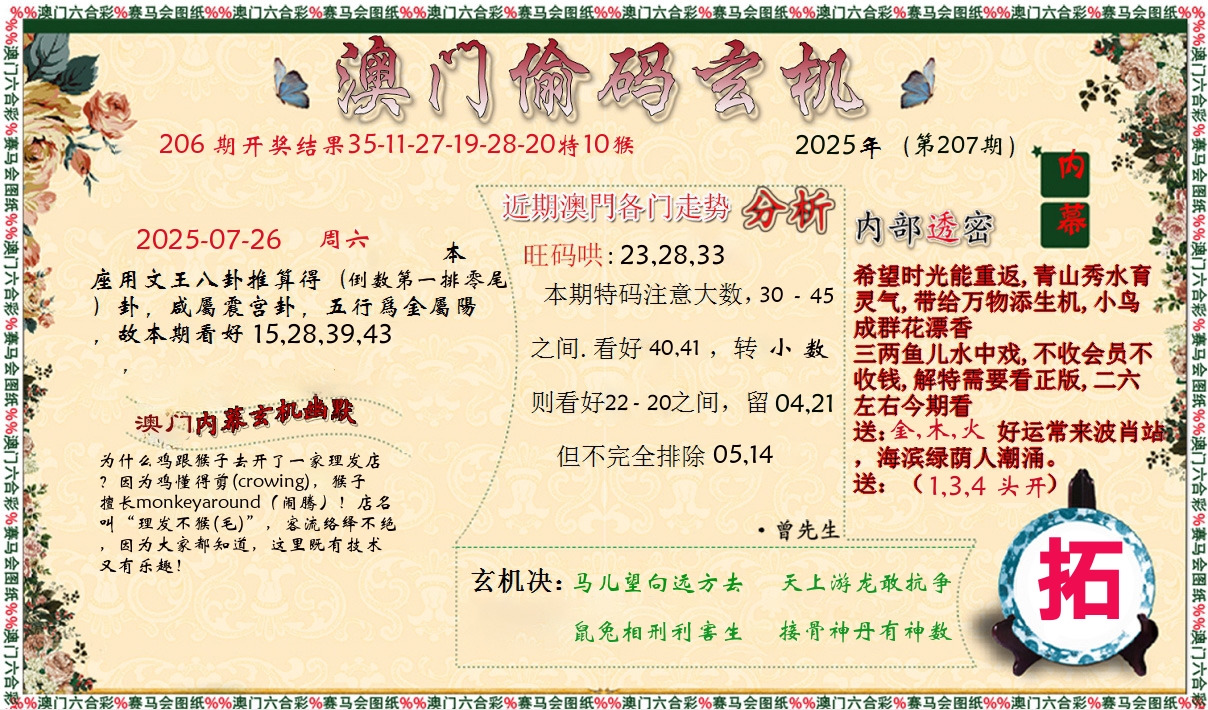 %%澳门六合彩%赛马会图纸%%澳门六合彩%赛马会图纸%%澳门六合彩%赛马会图纸%%澳门六合彩%赛马会图纸%%澳门六合彩%赛马会图纸%%澳门六合彩%赛马会图纸%%澳门六合彩%赛马会图纸%%
澳门偷码玄机
206 期开奖结果35-11-27-19-28-20特10猴
2025年（第207期）
内
幕
2025-07-26 周六
本
座用文王八卦推算得（倒数第一排零尾
）卦，咸屬震宫卦，五行爲金屬陽
，故本期看好 15,28,39,43
，
澳门内幕玄机幽默
为什么鸡跟猴子去开了一家理发店
？因为鸡懂得剪(crowing)，猴子
擅长monkeyaround（闹腾）！店名
叫“理发不猴(毛)”，客流络绎不绝
，因为大家都知道，这里既有技术
又有乐趣！
近期澳門各门走势 分析
旺码哄: 23,28,33
本期特码注意大数, 30 - 45
之间. 看好 40,41 ，转 小 数
则看好22 - 20之间，留 04,21
但不完全排除 05,14
·曾先生
内部透密
希望时光能重返, 青山秀水育
灵气, 带给万物添生机, 小鸟
成群花漂香
三两鱼儿水中戏, 不收会员不
收钱, 解特需要看正版, 二六
左右今期看
送: 金, 木, 火 好运常来波肖站
，海滨绿荫人潮涌。
送: （1,3,4 头开）
玄机决: 马儿望向远方去 天上游龙敢抗争
鼠兔相刑利害生 接骨神丹有神数
拓
%%澳门六合彩%赛马会图纸%%澳门六合彩%赛马会图纸%%澳门六合彩%赛马会图纸%%澳门六合彩%赛马会图纸%%澳门六合彩%赛马会图纸%%澳门六合彩%赛马会图纸%%澳门六合彩%赛马会图纸%%